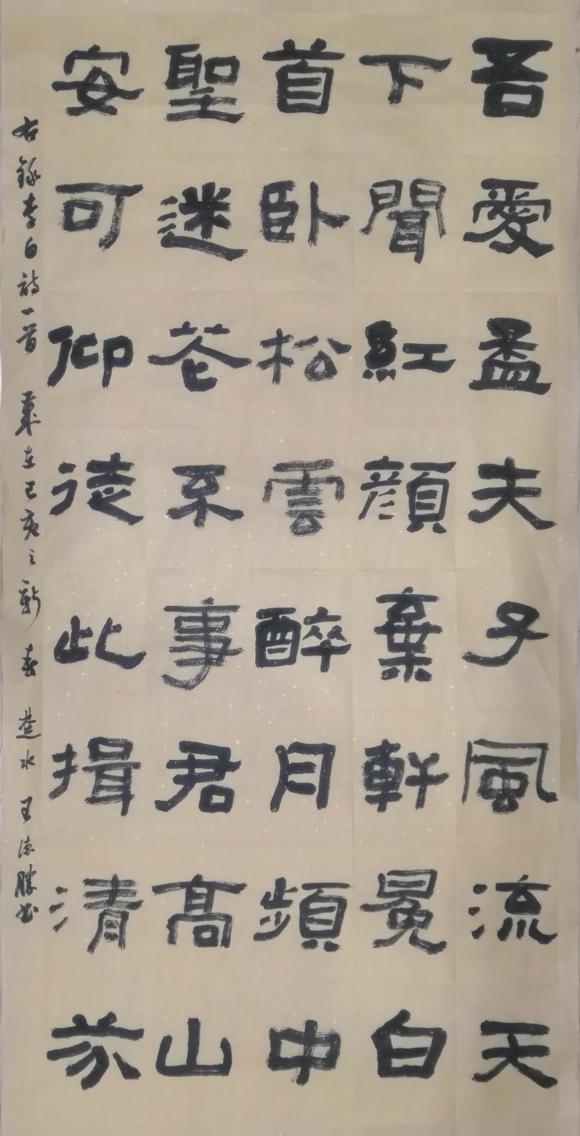 吾愛孟夫子風流天
下聞紅顏棄軒冕白
首卧松雲醉月頻中
聖迷花不事君高山
安可仰徒此揖清芬
右錄李白詩一首 歲在己亥之新春 楚水 王勝書